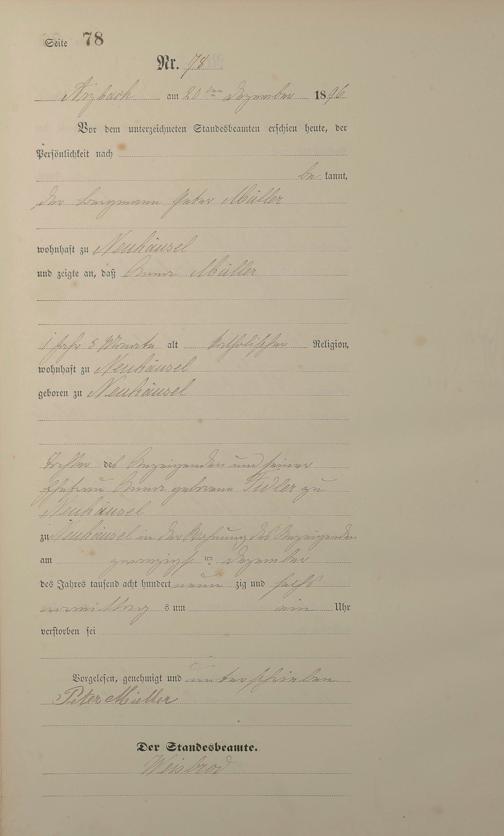 Seite 78
Nr. 78.
Arzbach am 20ten Dezember 1896
Vor dem unterzeichneten Standesbeamten erschien heute, der
Persönlichkeit nach
be kannt,
der Bergmann Peter Müller
wohnhaft zu Neuhäusel
und zeigte an, daß Anna Müller
1 Jahr 5 Monate alt katholischer Religion,
wohnhaft zu Neuhäusel
geboren zu Neuhäusel
Tochter des Anzeigenden und seiner
Ehefrau Anna geborene Fidler zu
Neuhäusel
zu Neuhäusel in der Wohnung des Anzeigenden
am zwanzigsten Dezember
des Jahres tausend acht hundert neun zig und sechs
vormittags um ein Uhr
verstorben sei
Vorgelesen, genehmigt und unterschrieben
Peter Müller
Der Standesbeamte.
Weisbrod